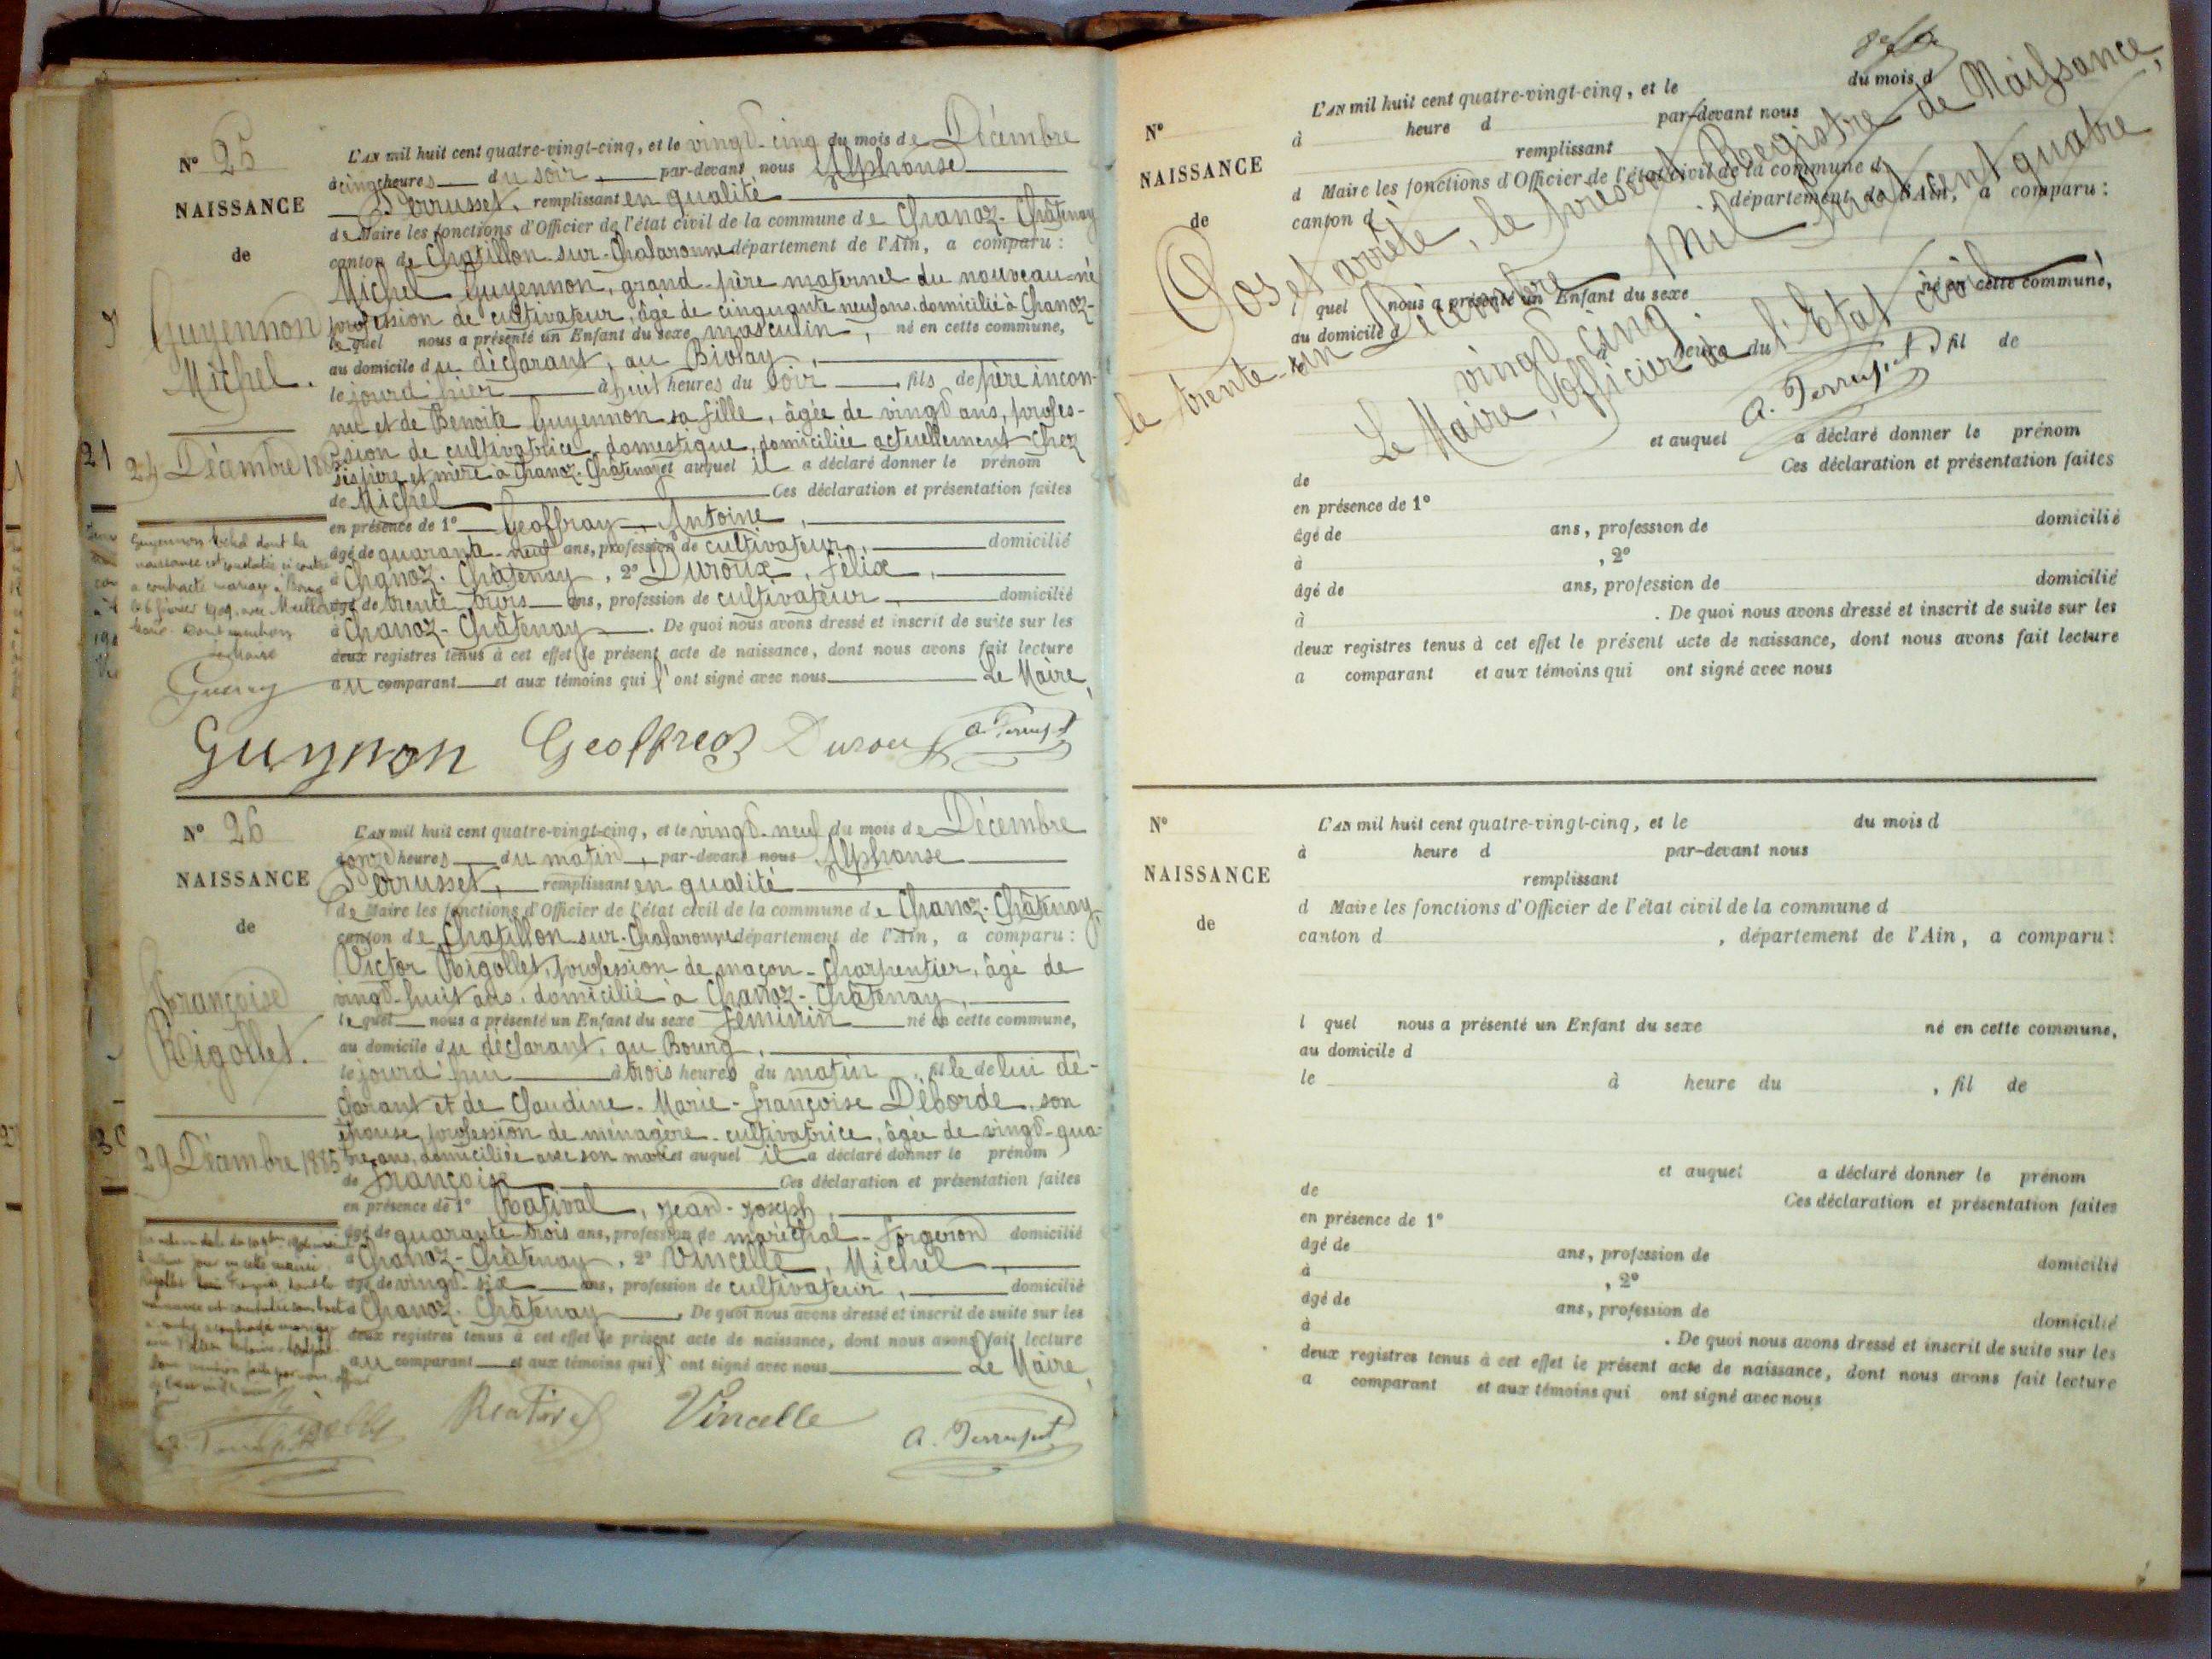 N° 25
NAISSANCE
de
Guyennon
Michel.
24 Décembre 188
L'AN mil huit cent quatre-vingt-cinq, et le vingt-cinq du mois de Décembre
à cinq heures du soir, par-devant nous Alphonse
Perrusset, remplissant en qualité
de Maire les fonctions d'Officier de l'état civil de la commune de Chanoz-Châtenay
canton de Chatillon-sur-Chalaronne département de l'Ain, a comparu :
Michel Guyennon, grand-père maternel du nouveau-né
profession de cultivateur, âgé de cinquante neuf ans, domicilié à Chanoz-
lequel nous a présenté un Enfant du sexe masculin, né en cette commune,
au domicile du déclarant, au Biolay,
le jour d'hier à huit heures du soir, fils de père incon-
nu et de Benoite Guyennon sa fille, âgée de vingt ans, profes-
sion de cultivatrice domestique, domiciliée actuellement chez
ses père et mère à Chanoz-Châtenay et auquel il a déclaré donner le prénom
de Michel Ces déclaration et présentation faites
en présence de 1° Geoffray, Antoine,
âgé de quarante-neuf ans, profession de cultivateur, domicilié
à Chanoz-Châtenay, 2° Duroux, Félix,
âgé de trente trois ans, profession de cultivateur, domicilié
à Chanoz-Châtenay. De quoi nous avons dressé et inscrit de suite sur les
deux registres tenus à cet effet le présent acte de naissance, dont nous avons fait lecture
au comparant et aux témoins qui l'ont signé avec nous Le Maire,
Guyennon Michel dont la
naissance est constatée ci contre
a contracté mariage à Bourg
le 6 février 1909, avec
Marie. Dont mention
Guynon Geoffray Duroux A. Perrusset
N° 26
NAISSANCE
de
Françoise
Rigollet.
29 Décembre 1885
L'AN mil huit cent quatre-vingt-cinq, et le vingt-neuf du mois de Décembre
à onze heures du matin, par-devant nous Alphonse
Perrusset, remplissant en qualité
de Maire les fonctions d'Officier de l'état civil de la commune de Chanoz-Châtenay
canton de Chatillon-sur-Chalaronne département de l'Ain, a comparu :
Victor Rigollet, profession de maçon-charpentier, âgé de
vingt-huit ans, domicilié à Chanoz-Châtenay,
lequel nous a présenté un Enfant du sexe féminin né en cette commune,
au domicile du déclarant, au Bourg,
le jour d'hui à trois heures du matin, fille de lui dé-
clarant et de Claudine-Marie-Françoise Déborde, son
épouse, profession de ménagère-cultivatrice, âgée de vingt-qua-
tre ans, domiciliée avec son mari et auquel il a déclaré donner le prénom
de Françoise Ces déclaration et présentation faites
en présence de 1° Ratival, Jean-Joseph,
âgé de quarante-trois ans, profession de maréchal-forgeron domicilié
à Chanoz-Châtenay, 2° Vincelle, Michel,
âgé de vingt-six ans, profession de cultivateur, domicilié
à Chanoz-Châtenay. De quoi nous avons dressé et inscrit de suite sur les
deux registres tenus à cet effet le présent acte de naissance, dont nous avons fait lecture
au comparant et aux témoins qui l'ont signé avec nous Le Maire,
Vincelle A. Perrusset
N°
NAISSANCE
de
L'AN mil huit cent quatre-vingt-cinq, et le du mois d
à heure d par-devant nous
remplissant
d Maire les fonctions d'Officier de l'état civil de la commune d
canton d département de l'Ain, a comparu :
l quel nous a présenté un Enfant du sexe né en cette commune,
au domicile d
à heure du fil de
et auquel a déclaré donner le prénom
de Ces déclaration et présentation faites
en présence de 1°
âgé de ans, profession de domicilié
à , 2°
âgé de ans, profession de domicilié
à . De quoi nous avons dressé et inscrit de suite sur les
deux registres tenus à cet effet le présent acte de naissance, dont nous avons fait lecture
a comparant et aux témoins qui ont signé avec nous
Clos et arrêté, le présent Registre de Naissance,
le trente-un Décembre mil huit cent quatre
vingt cinq.
Le Maire, Officier de l'Etat civil
A. Perrusset
N°
NAISSANCE
de
L'AN mil huit cent quatre-vingt-cinq, et le du mois d
à heure d par-devant nous
remplissant
d Maire les fonctions d'Officier de l'état civil de la commune d
canton d , département de l'Ain, a comparu :
l quel nous a présenté un Enfant du sexe né en cette commune,
au domicile d
le à heure du , fil de
et auquel a déclaré donner le prénom
de Ces déclaration et présentation faites
en présence de 1°
âgé de ans, profession de domicilié
à , 2°
âgé de ans, profession de domicilié
à . De quoi nous avons dressé et inscrit de suite sur les
deux registres tenus à cet effet le présent acte de naissance, dont nous avons fait lecture
a comparant et aux témoins qui ont signé avec nous